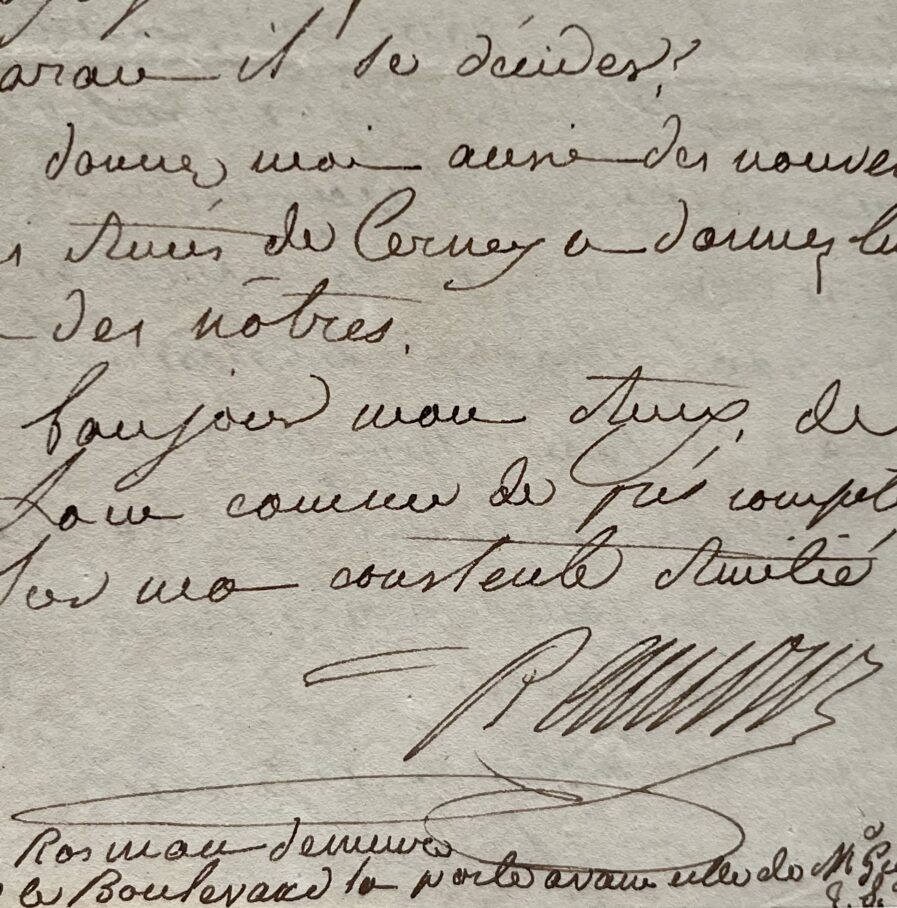 il se décider?
donnez moi aussi des nouvel
Amis de Cerney a donnez lu
des nôtres.
bonjour mon Amy, de
Loin comme de prés compt
Sur ma constente Amitié
Rosman demeure
le Boulevard la porte avant celle de Mr